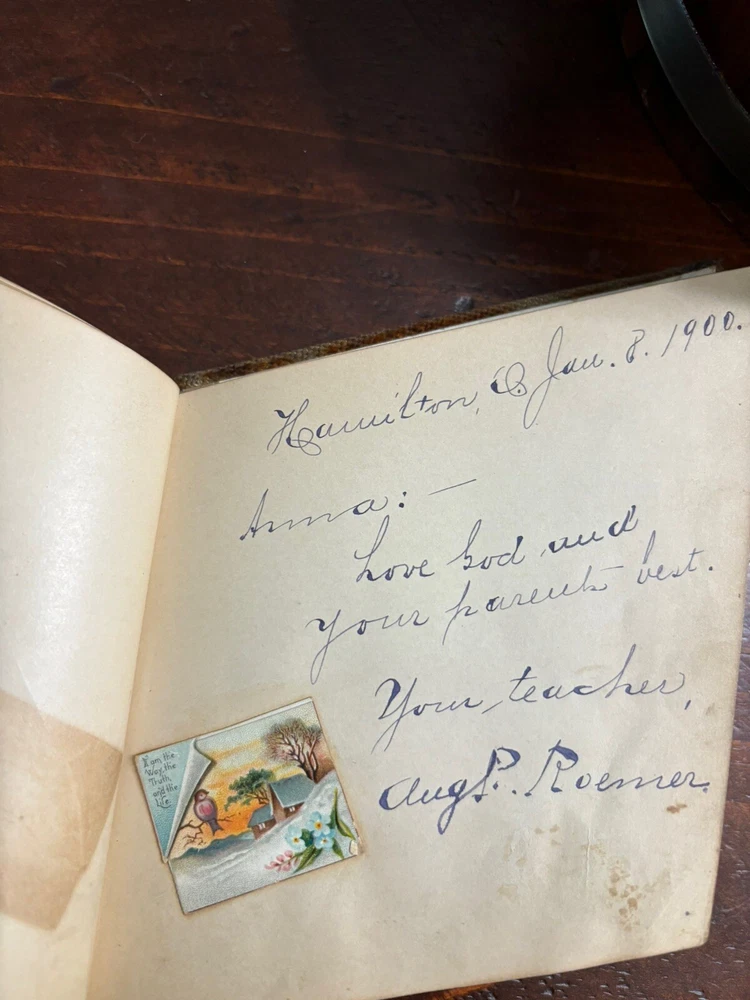 Hamilton, O. Jan. 8. 1900.
Anna: —
Love God and
your parents best.
Your teacher,
Aug. P. Roemer.
I am the
Way, the
Truth,
and the
Life